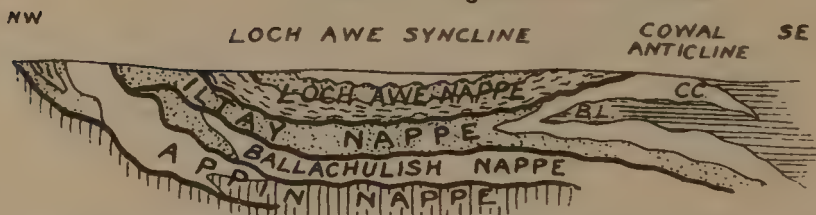 NW
LOCH AWE SYNCLINE
COWAL
ANTICLINE
SE
LOCH AWE NAPPE
CC
BL
ILTAY NAPPE
BALLACHULISH NAPPE
APPIN NAPPE